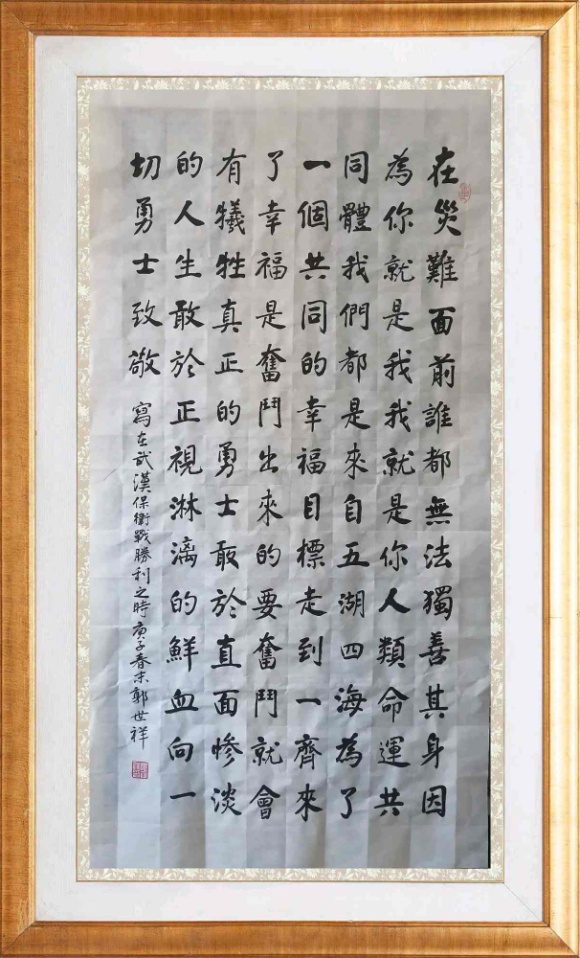 在災難面前誰都無法獨善其身因
為你就是我我就是你人類命運共
同體我們都是來自五湖四海為了
一個共同的幸福目標走到一齊來
了幸福是奮鬥出來的要奮鬥就會
有犧牲真正的勇士敢於直面慘淡
的人生敢於正視淋漓的鮮血向一
切勇士致敬
寫在武漢保衛戰勝利之時庚子春末郭世祥